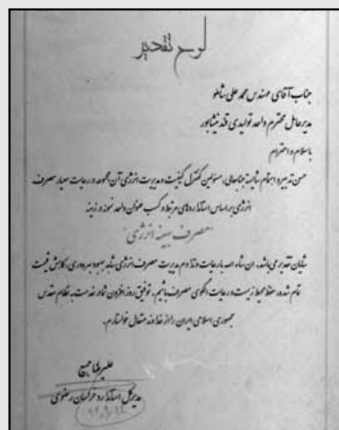 لوح تقدیر
جناب آقای مهندس محمد علی شاملو
مدیرعامل محترم واحد تولیدی قند نیشابور
با سلام و احترام
حسن تدبیر و اهتمام شایسته جنابعالی، مسئولین کنترل کیفیت و مدیریت انرژی آن مجموعه در رعایت معیار مصرف
انرژی بر اساس استانداردهای مرتبط و کسب عنوان واحد نمونه در زمینه
"مصرف بهینه انرژی"
شایان تقدیر می‌باشد. ان شاء الله با رعایت و تداوم مدیریت مصرف انرژی شاهد بهبود بهره‌وری، کاهش قیمت
تمام شده، حفظ محیط زیست و رعایت الگوی مصرف باشیم. توفیق روز افزون شما در خدمت به نظام مقدس
جمهوری اسلامی ایران را از خداوند متعال خواستارم.
مدیر کل استاندارد خراسان رضوی